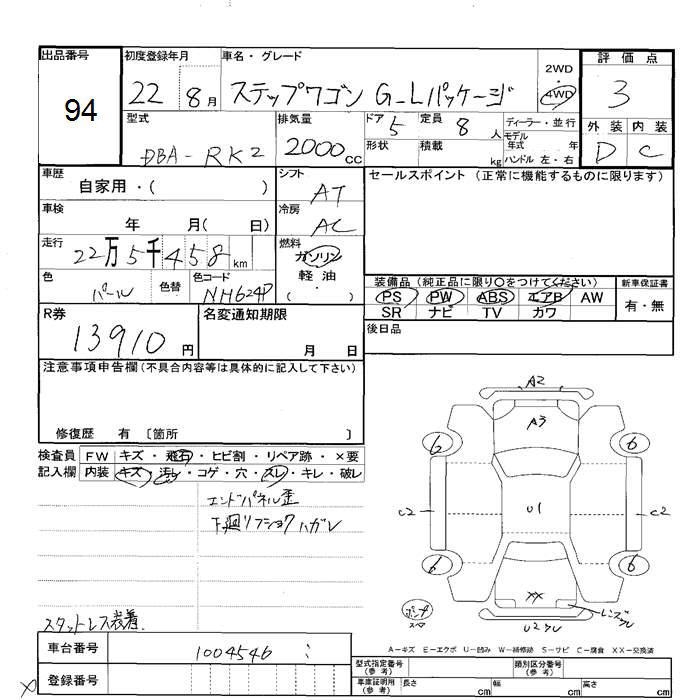 出品番号
94
初度登録年月
22 8月
車名・グレード
ステップワゴン G-Lパッケージ
2WD
・
4WD
評価点
3
型式
DBA-RK2
排気量
2000cc
ドア 5
定員 8人
形状
積載 kg
ディーラー・並行
モデル年式 年
ハンドル 左・右
外装 内装
D C
車歴
自家用・( )
シフト
AT
セールスポイント (正常に機能するものに限ります)
車検
年 月( 日)
冷房
AC
走行
22万5千458km
燃料
ガソリン
軽油
( ・ )
色
パール
色替
色コード
NH624P
装備品 (純正品に限り○をつけてください)
PS PW ABS エアB AW
SR ナビ TV カワ
新車保証書
有・無
R券
13910円
名変通知期限
月 日
後日品
注意事項申告欄 (不具合内容等は具体的に記入して下さい)
修復歴 有 〔箇所 〕
検査員記入欄
FW キズ・飛石・ヒビ割・リペア跡・×要
内装 キズ・汚レ・コゲ・穴・スレ・キレ・破レ
エンドパネル歪
下廻リフショクハガレ
スタットレス装着
A2
A3
6 6
C2 U1 C2
6 6
XX
U2
A-キズ E-エクボ U-凹み W-補修跡 S-サビ C-腐食 XX-交換済
車台番号
1004546
登録番号
型式指定番号(参考)
類別区分番号(参考)
車庫証明用(参考) 長さ cm 幅 cm 高さ cm